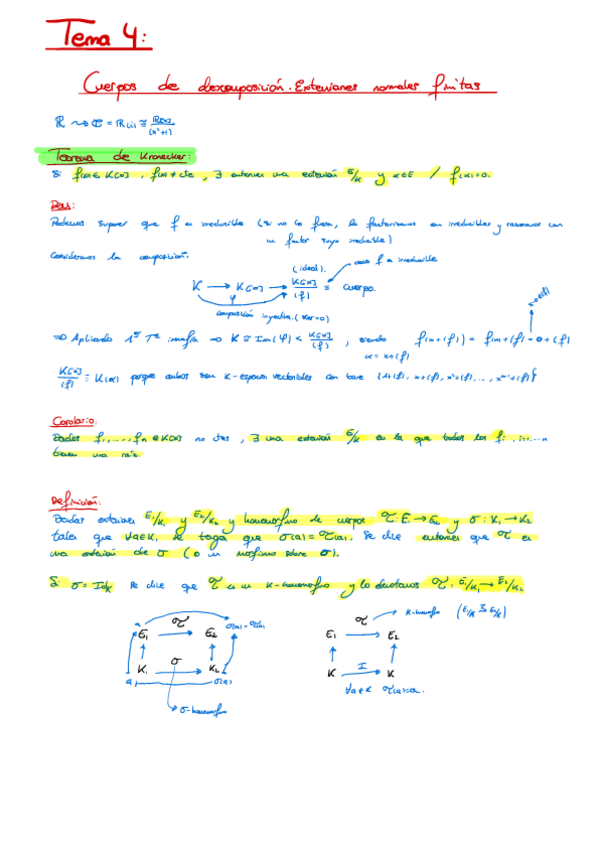 Tema 4:
Cuerpos de descomposición. Extensiones normales finitas
ℝ ⇝ ℂ = ℝ(i) ≅ ℝ[x]/(x²+1)
Teorema de Kronecker:
Si f(x) ∈ K[x], f(x) ≠ cte, ∃ entonces una extensión E/K y α ∈ E / f(α)=0.
Dem:
Podemos suponer que f es irreducible (si no lo fuera, lo factorizamos en irreducibles y razonamos con
un factor suyo irreducible)
Consideramos la composición.
(ideal). caso f es irreducible
K → K[x] → K[x]/(f) ≡ Cuerpo.
φ
composición inyectiva. (Ker=0)
⇒ Aplicando 1er Tª isomfía ⇒ K ≅ Im(φ) < K[x]/(f), siendo f(x+(f)) = f(x)+(f) = 0+(f)
α = x+(f)
K[x]/(f) ≡ K(α) porque ambos son K-espacios vectoriales con base {1+(f), x+(f), x²+(f), ..., xⁿ⁻¹+(f)}
Corolario:
Dados f₁, ..., fₙ ∈ K[x] no ctes, ∃ una extensión E/K en la que todos los fᵢ
tienen una raíz
Definición:
Dadas extensiones E₁/K₁ y E₂/K₂ y homomorfismo de cuerpos τ: E₁ → E₂ y σ: K₁ → K₂
tales que ∀a∈K₁ se tenga que σ(a) = τ(a). Se dice entonces que τ es
una extensión de σ (o un morfismo sobre σ).
Si σ = Id_K se dice que τ es un K-homomorfismo y lo denotamos τ: E₁/K → E₂/K
τ σ(a)=τ(a)
E₁ → E₂
σ
K₁ → K₂
a σ(a)
σ-homomorfismo
τ K-homomorfo
E₁ → E₂
I
K → K
∀a∈K τ(a)=a.